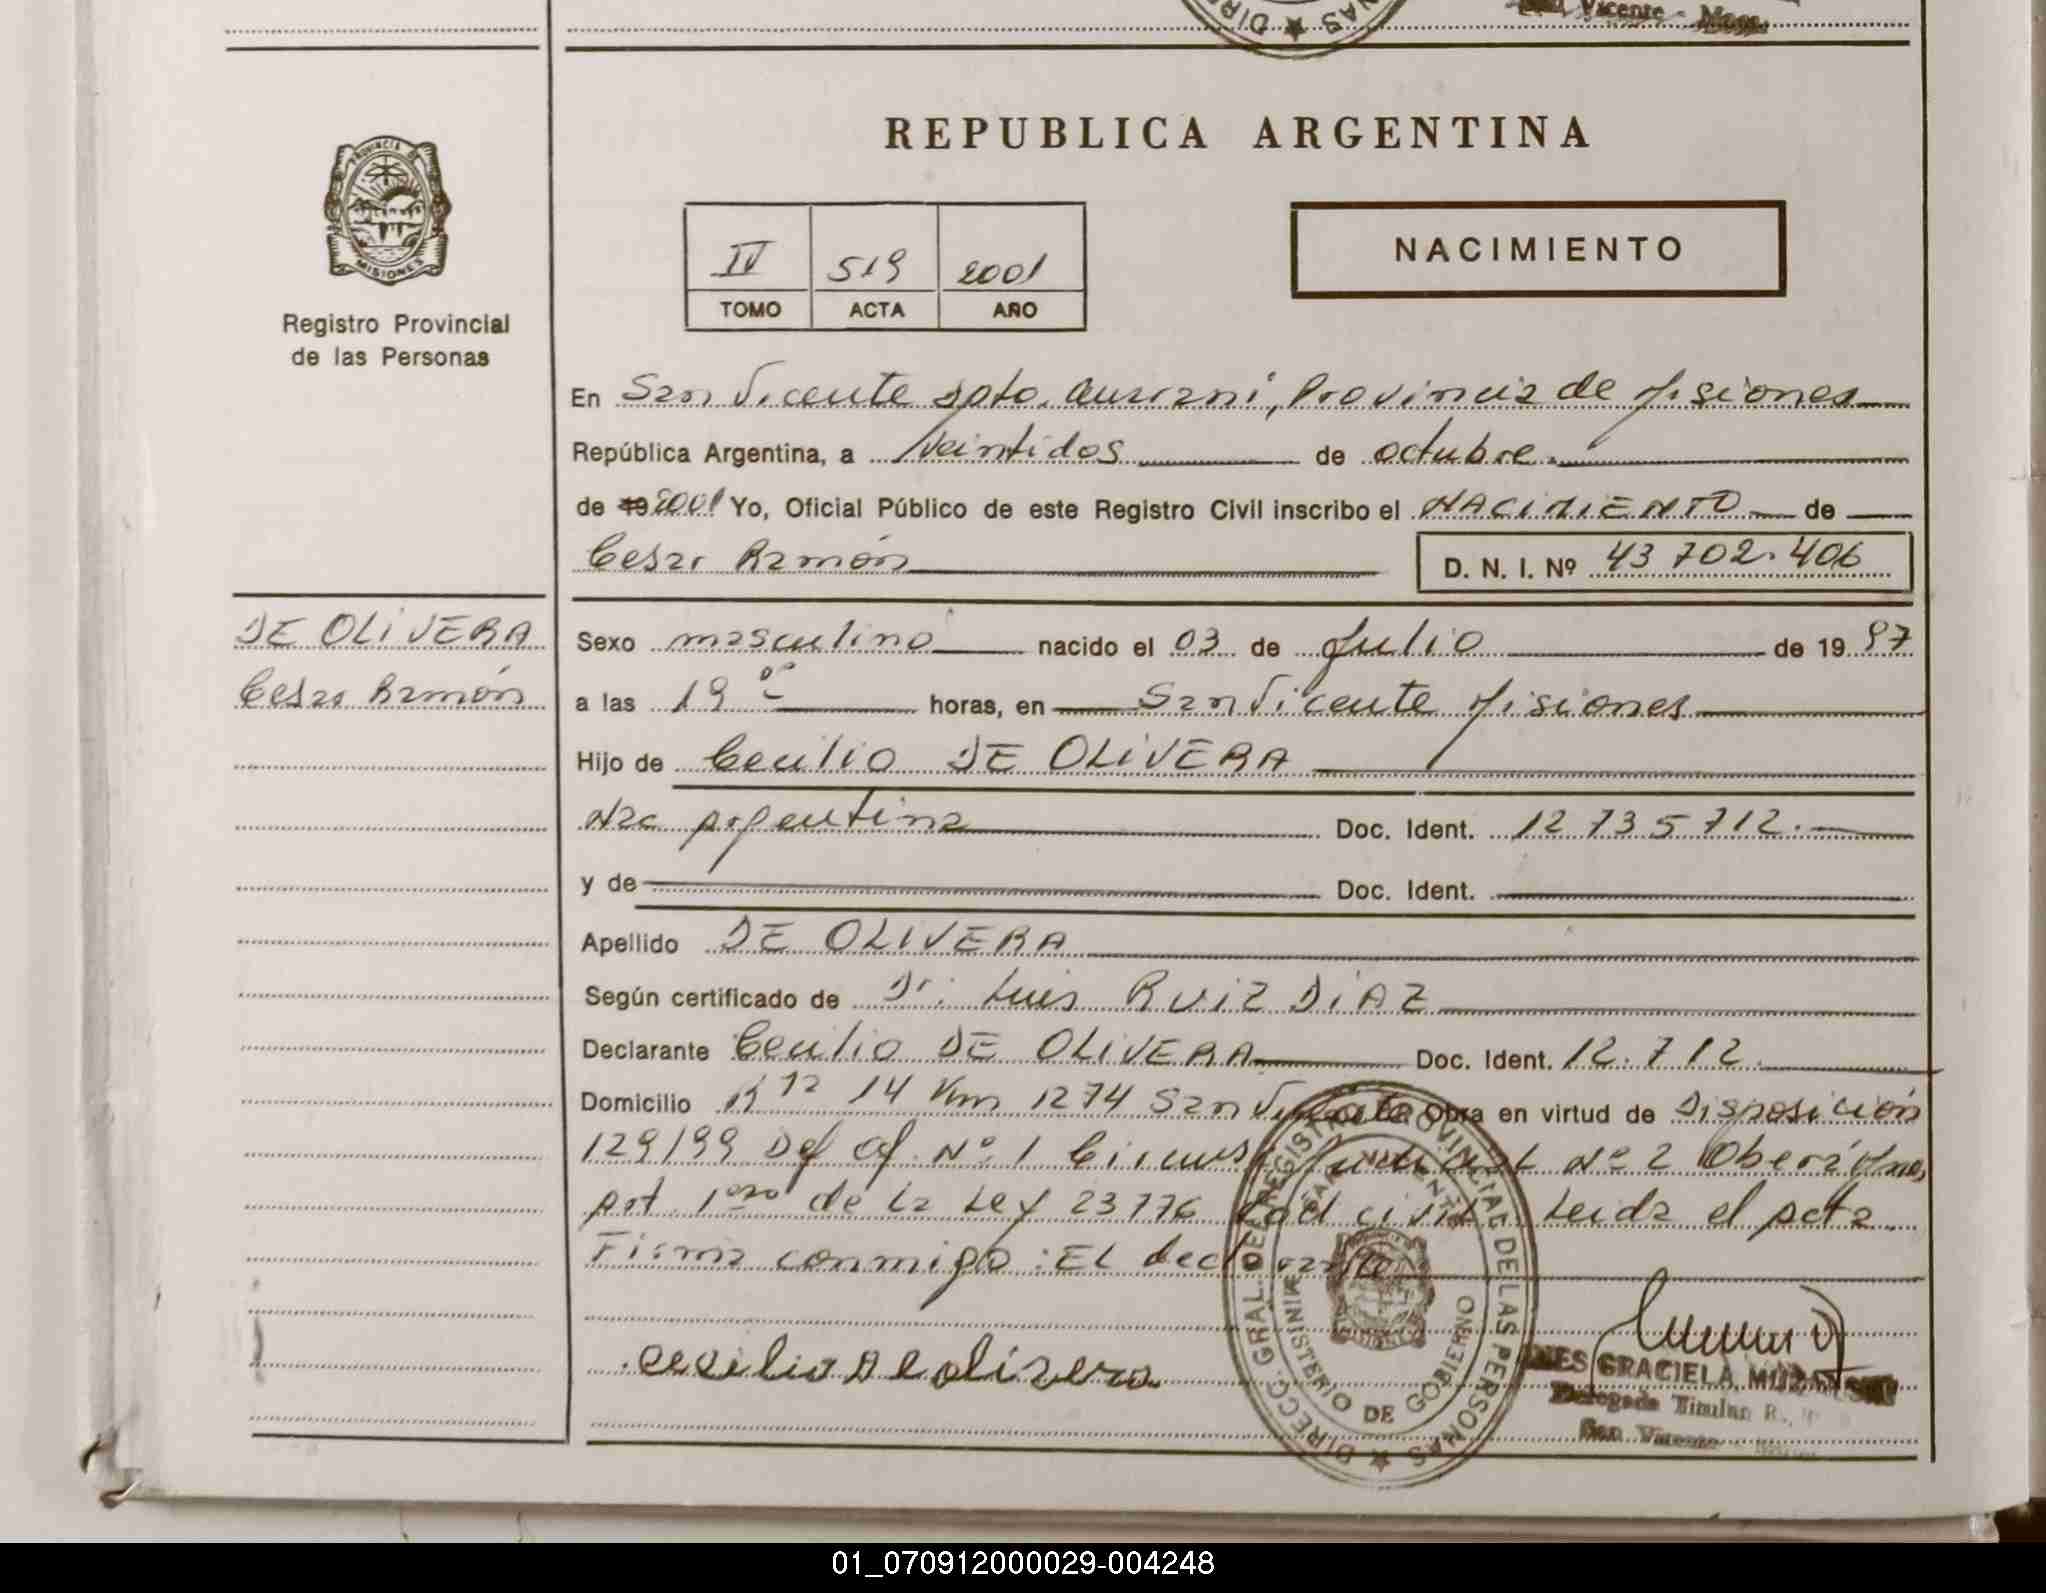 San Vicente - Mnes.
DIREC ★ NAS
REPUBLICA ARGENTINA
PROVINCIA DE
MISIONES
Registro Provincial
de las Personas
IV 519 2001
TOMO ACTA AÑO
NACIMIENTO
En San Vicente Dpto. Guaraní, Provincia de Misiones
República Argentina, a Veintidos de octubre.
de 19 2001 Yo, Oficial Público de este Registro Civil inscribo el NACIMIENTO de
Cesar Ramón D. N. I. Nº 43 702.406
DE OLIVERA
Cesar Ramón
Sexo masculino nacido el 03 de Julio de 19 97
a las 19 horas, en San Vicente Misiones
Hijo de Cecilio DE OLIVERA
Nac Argentina Doc. Ident. 12 735 712.
y de Doc. Ident.
Apellido DE OLIVERA
Según certificado de Dr. Luis RUIZ DIAZ
Declarante Cecilio DE OLIVERA Doc. Ident. 12.712
Domicilio Rta 14 Km 1274 San Vicente Obra en virtud de Disposición
129/99 Def Of. Nº 1 Nº 2 Oberá Mnes
Art. 1ero de la Ley 23776 Cod civil. Leida el acta
Firma conmigo: El declarante
Cecilio De olivera
DIRECC. GRAL. DEL REGISTRO PROVINCIAL DE LAS PERSONAS ★
SAN VICENTE
MINISTERIO DE GOBIERNO
INES GRACIELA
Delegada Titular R.
San Vicente
01_070912000029-004248